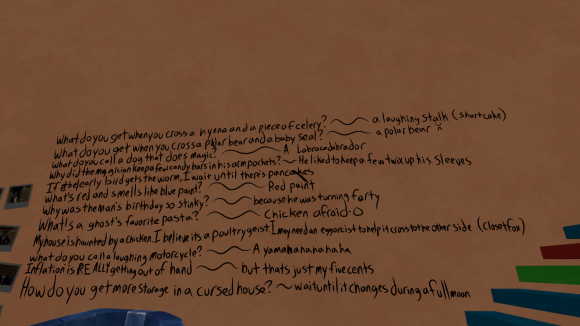 What do you get when you cross a hyena and a piece of celery? ~ a laughing stalk (shortcake)
What do you get when you cross a polar bear and a baby seal? ~ a polar bear
What do you call a dog that does magic? ~ A Labracadabrador
Why did the magician keep a few candy bars in his arm pockets? ~ He liked to keep a few twix up his sleeves
If the early bird gets the worm, I wait until there's pancakes
What's red and smells like blue paint? ~ Red paint
Why was the man's birthday so stinky? ~ because he was turning farty
What is a ghost's favorite pasta? ~ Chicken afraid-o
My house is haunted by a chicken. I believe its a poultrygeist I may need an eggsorcist to help it cross to the other side (Closetfox)
what do you call a laughing motorcycle? ~ A yamahahahahaha
Inflation is REALLY getting out of hand ~ but thats just my five cents
How do you get more storage in a cursed house? ~ wait until it changes during a full moon